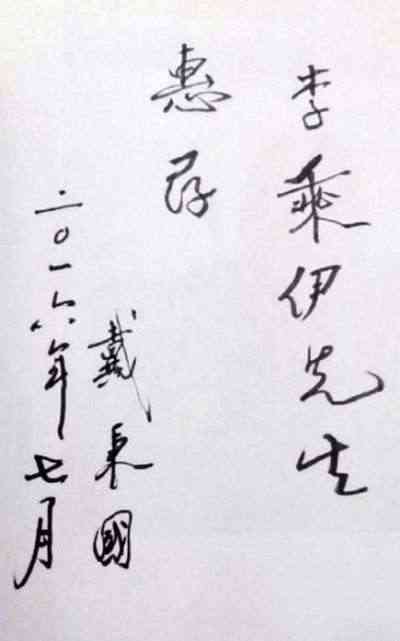 李乘伊先生
惠存
戴东國
二〇一六年七月